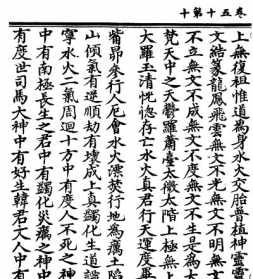 卷五十第十
上無復祖惟道為身水火交胎普植神靈靈
文結篆龍鳳飛雲無文不光無文不明無文
不立無文不成無文不度無文不生是為
梵天中之天鬱羅蕭臺太微太階上極無
大羅玉清恍惚存亡水火真君行天運度畢
觜昴參行人厄會水火漂焚行地為癘土陷
山傾氣有逆順劫有壞成上真蠲化生道
寧水火二氣周迴十方中有度人不死之神
中有南極長生之君中有蠲化災癘之神中
有度世司馬大神中有好生韓君丈人中有